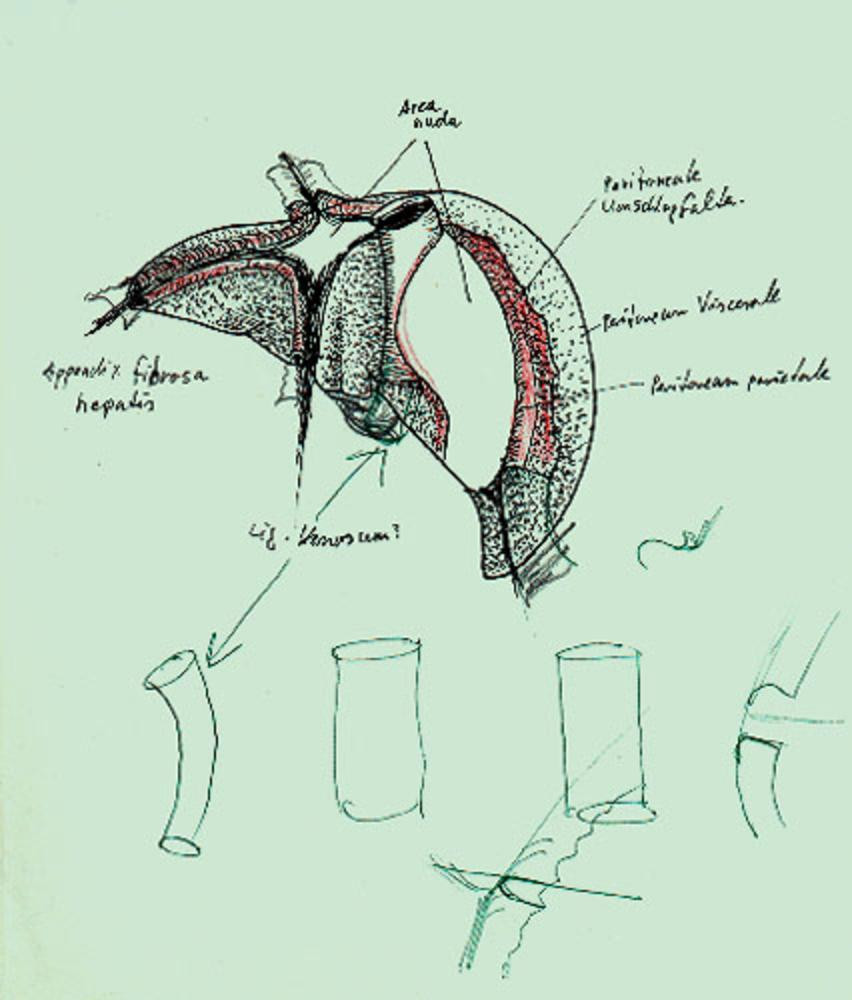 Area
nuda
Peritoneale
Umschlagfalte.
Peritoneum Viscerale
Peritoneum parietale
Appendix fibrosa
hepatis
Lig. Venosum?